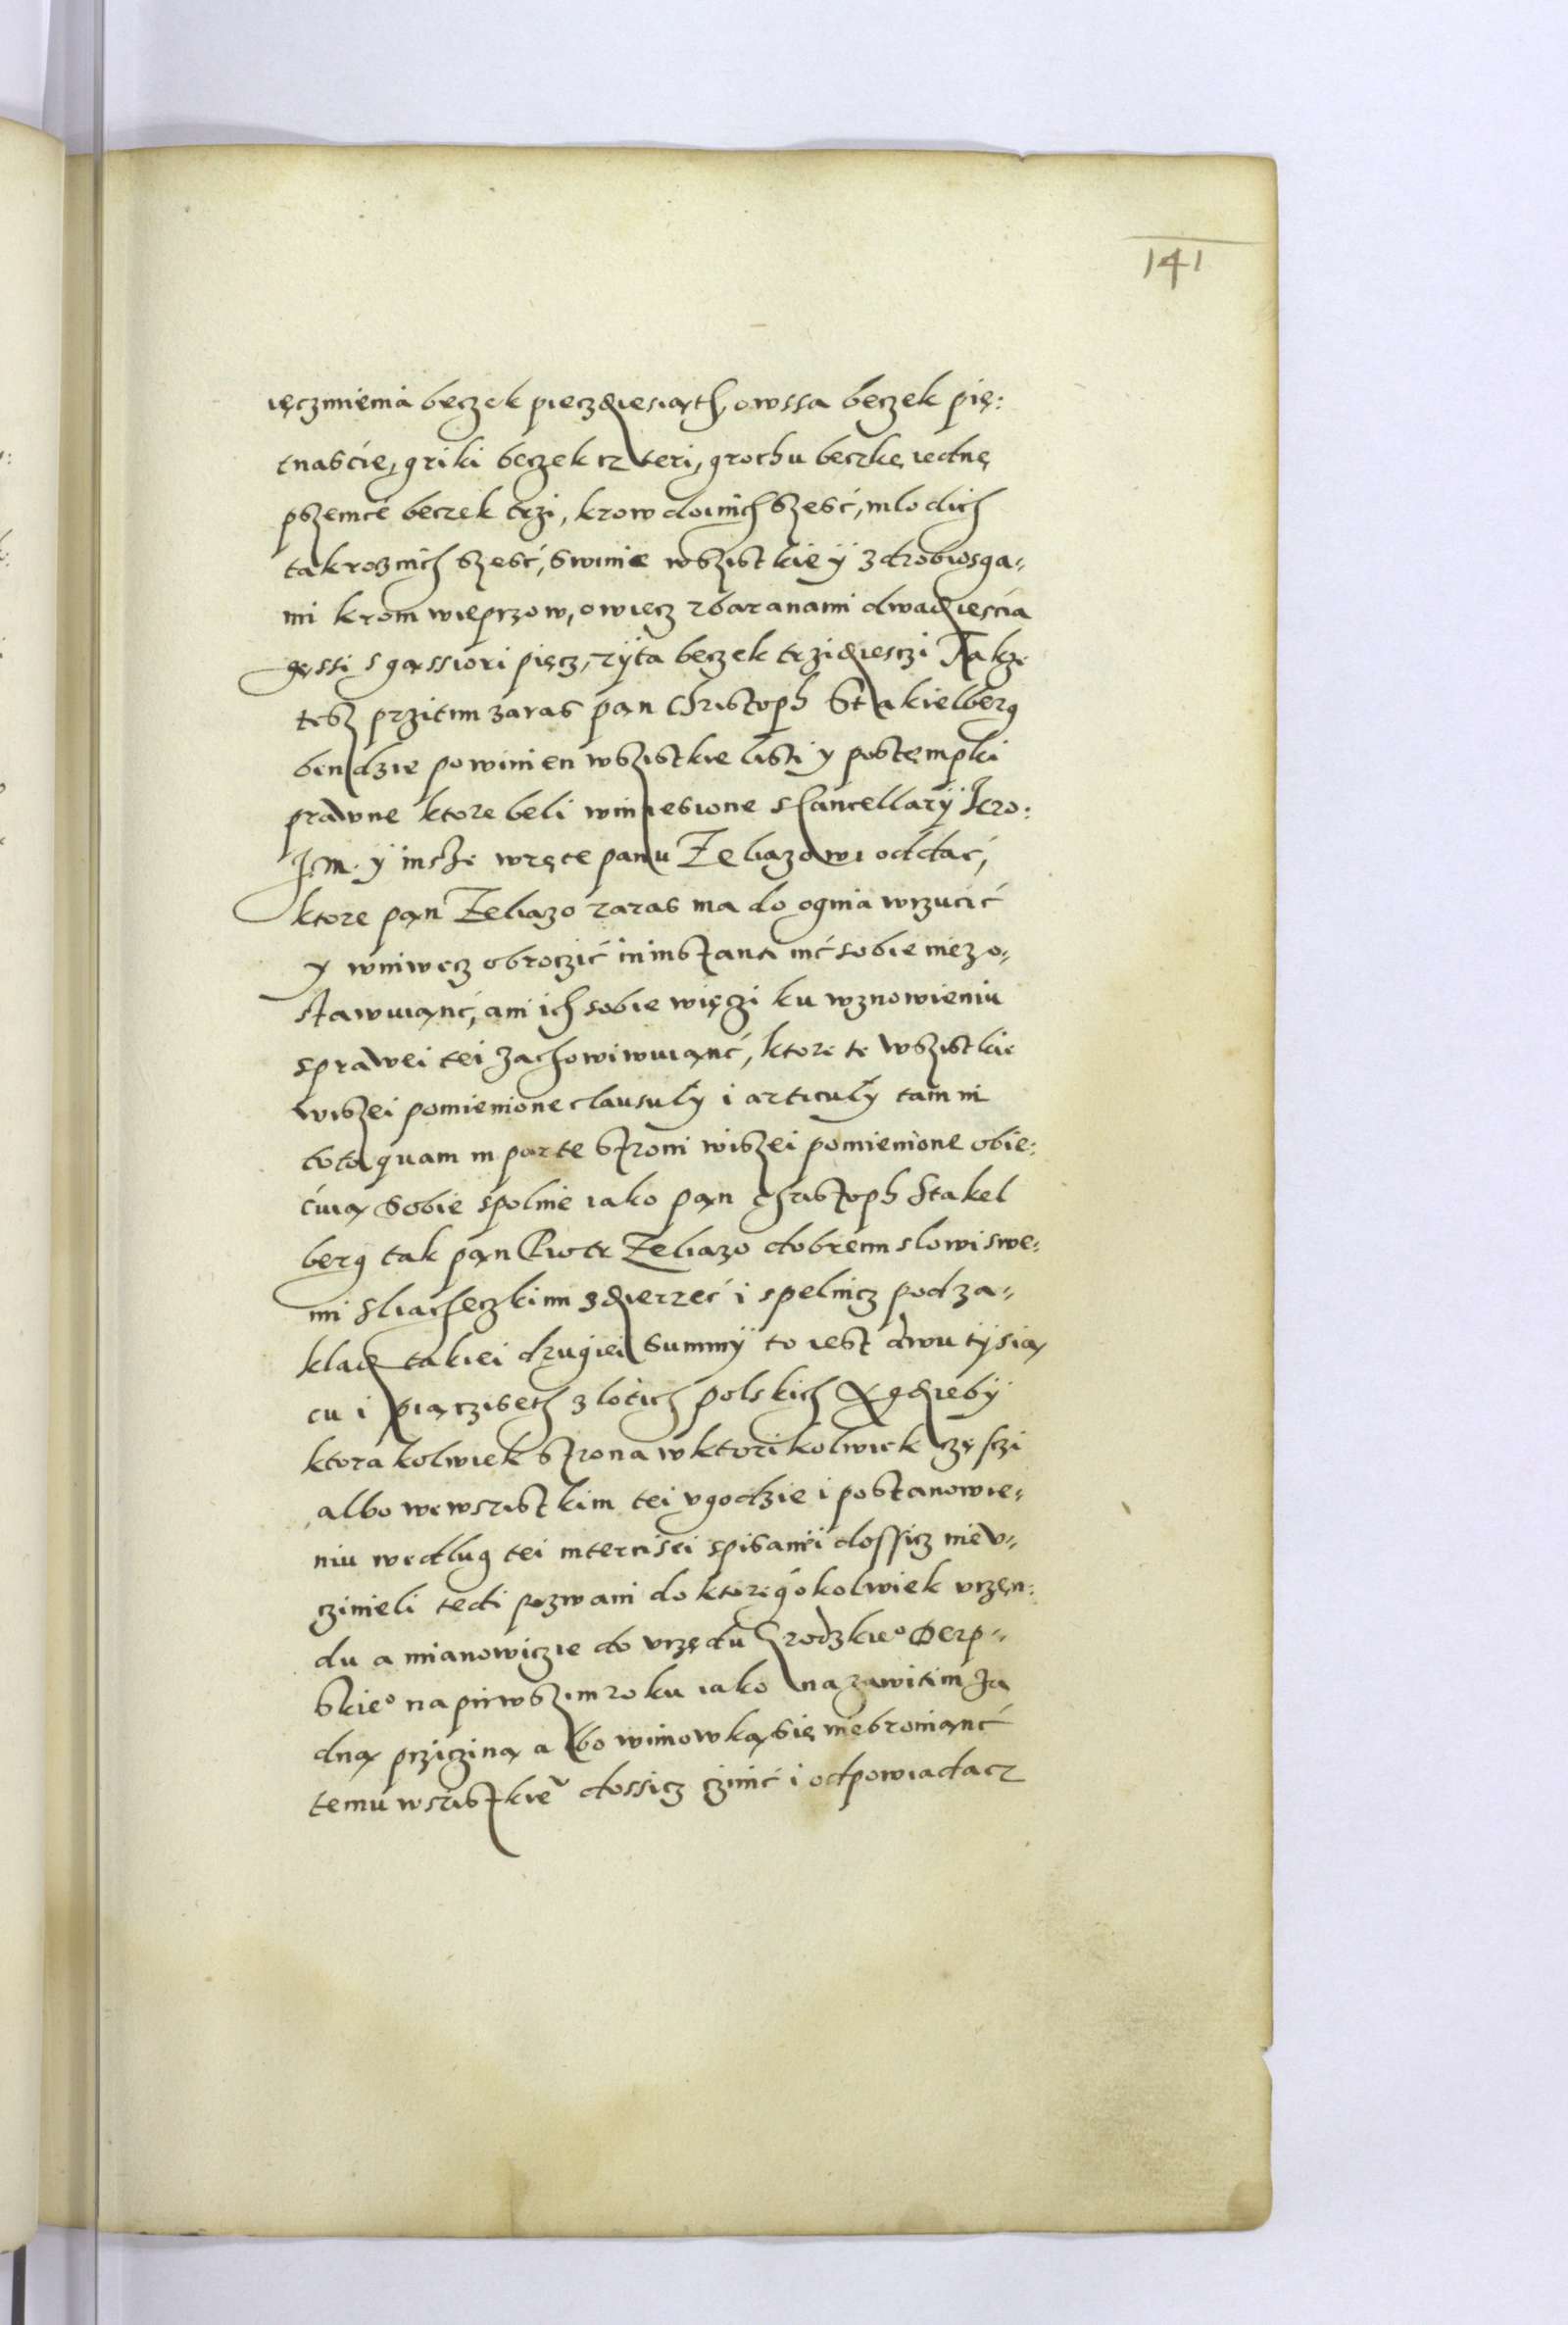 141
ięczmienia beczek pieczdziesiąth, owssa beczek pię:
tnaście, griki beczek czteri, grochu beczkę iednę
pszenice beczek trzi, krow doinich szesć, mlodich
takrocznich szesć, swinie wszistkie ÿ zdrobiosga-
mi krom wieprzow, owiecz zbaranami dwadziescia
gęssi s gąssiori pięcz, zÿta beczek trzidziesczi Takze
tesz przitim zaras pan Christoph Stakielberg
bendzie powinien wszistkie listi y postempki
prawne ktore beli winiesione s Cancellarÿ Jero:
Jm. ÿ insze wręce panu Zeliazowi oddać,
ktore pan Zeliazo zaras ma do ognia wrzucić
y wniwecz obroczić in instanti nić sobie niezo-
stawuiąnć, ani ich sobie więczi ku wznowieniu
sprawei tei zachowiwuiąnć, ktore te wszistkie
wiszei pomienione clausulÿ i articulÿ tam in
toto quam in parte stroni wiszei pomienione obie:
ćuią sobie spolnie iako pan Christoph Stakel
berg tak pan Piotr Zeliazo dobrem slowi swe:
mi sliacheczkimi zdzierzeć i spelnicz pod za-
klad takiei drugiei summÿ to iest dwu tÿsią
cu i piącziseth zlotich polskich A gdzieby
ktora kolwiek strona w ktori kolwiek częsczi
albo we wszistkim tei ugodzie i postanowie-
niu wedlug tei intercisei spisanei dossicz nieu-
czinieli tedi pozwani do ktoregokolwiek urzęn:
du a mianowiczie do urzędu Grodzkieº Derp-
skieº na pirwszim roku iako na zawitim Ża
dną prziczina albo wimowką się niebroniąnć
temu wszistkie~ dossicz czinić i odpowiadacz